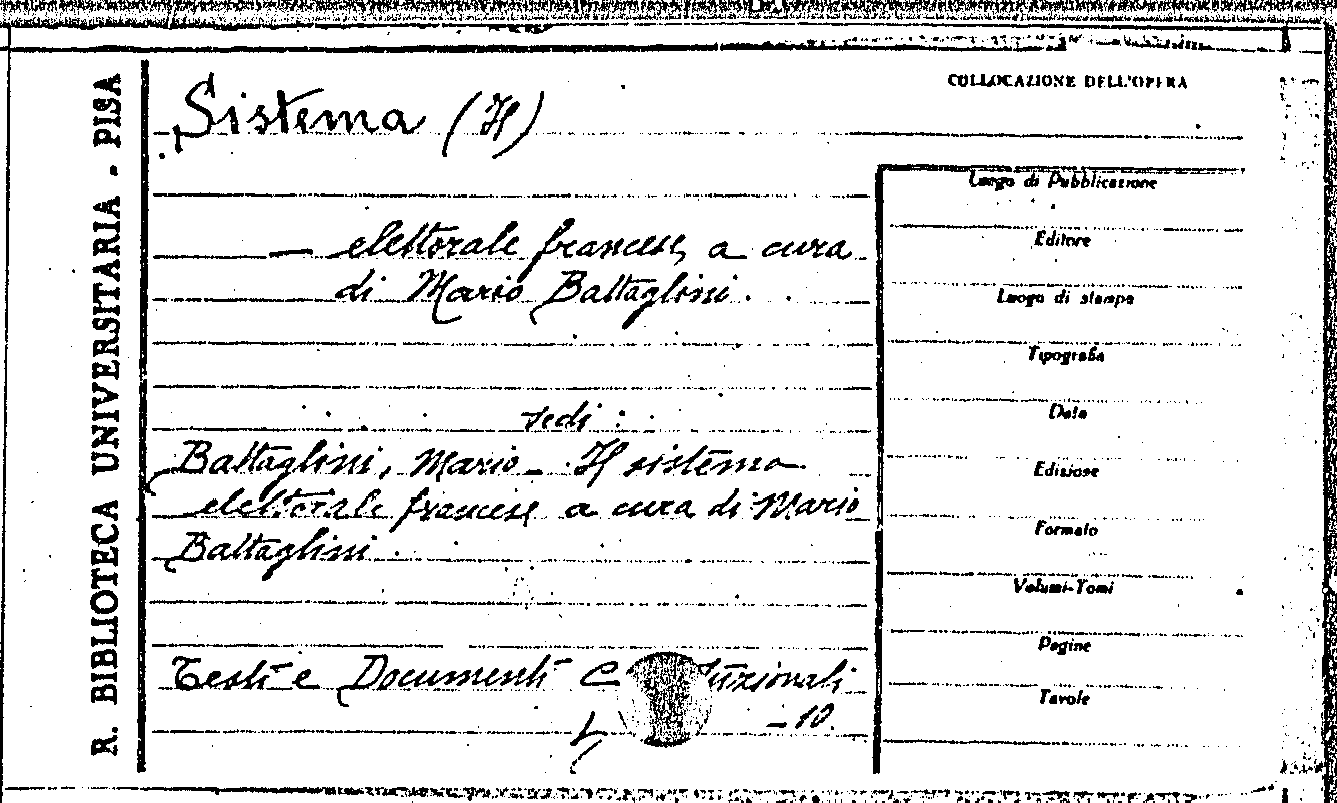 R. BIBLIOTECA UNIVERSITARIA - PISA
COLLOCAZIONE DELL'OPERA
Sistema (Il)
— elettorale francese, a cura
di Mario Battaglini.
vedi :
Battaglini, Mario - Il sistema
elettorale francese a cura di Mario
Battaglini.
Testi e Documenti
- 10.
Luogo di Pubblicazione
Editore
Luogo di stampa
Tipografia
Data
Edizione
Formato
Volumi-Tomi
Pagine
Tavole